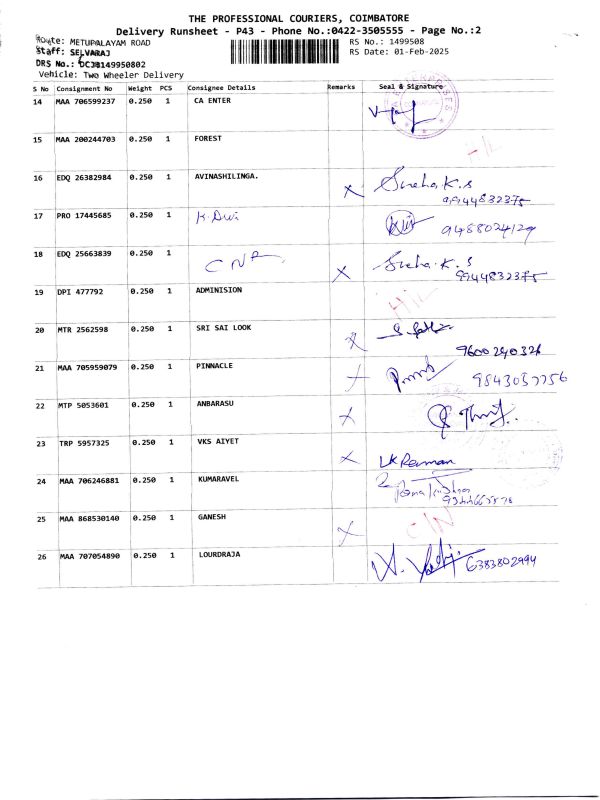 THE PROFESSIONAL COURIERS, COIMBATORE
Delivery Runsheet - P43 - Phone No.:0422-3505555 - Page No.:2
Route: METUPALAYAM ROAD
RS No.: 1499508
Staff: SELVARAJ
RS Date: 01-Feb-2025
DRS No.: DCJB149950802
Vehicle: Two Wheeler Delivery
S No Consignment No Weight PCS Consignee Details Remarks Seal & Signature
14 MAA 706599237 0.250 1 CA ENTER
15 MAA 200244703 0.250 1 FOREST
16 EDQ 26382984 0.250 1 AVINASHILINGA. X Sneha.K.S
9944832375
17 PRO 17445685 0.250 1 K. Devi 9488024129
18 EDQ 25663839 0.250 1 CNR X Sneha.K.S
9944832375
19 DPI 477792 0.250 1 ADMINISION
20 MTR 2562598 0.250 1 SRI SAI LOOK X
9600240326
21 MAA 705959079 0.250 1 PINNACLE X 9843057756
22 MTP 5053601 0.250 1 ANBARASU X
23 TRP 5957325 0.250 1 VKS AIYET X
24 MAA 706246881 0.250 1 KUMARAVEL
25 MAA 868530140 0.250 1 GANESH X
26 MAA 707054890 0.250 1 LOURDRAJA 6383802994